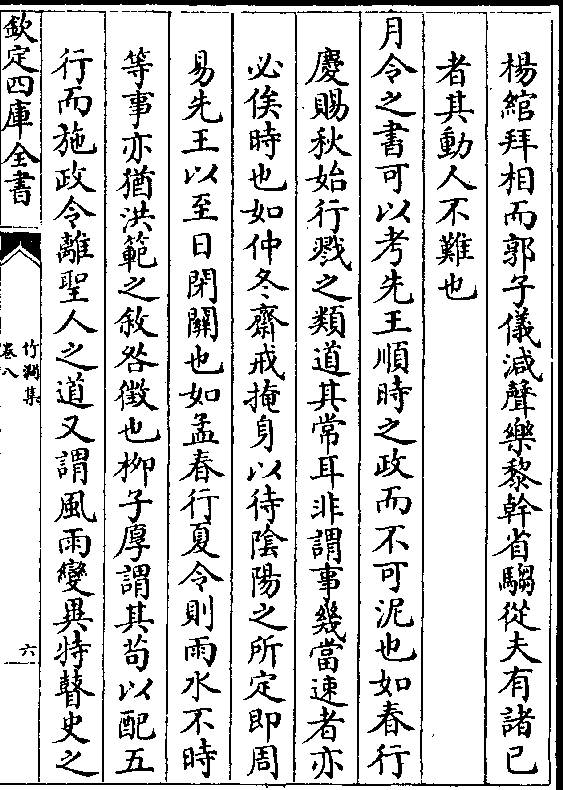 楊綰拜相而郭子儀減聲樂黎幹省騶從夫有諸已
者其動人不難也
月令之書可以考先王順時之政而不可泥也如春行
慶賜秋始行戮之類道其常耳非謂事幾當速者亦
必俟時也如仲冬齋戒掩身以待陰陽之所定即周
易先王以至日閉關也如孟春行夏令則雨水不時
等事亦猶洪範之敘咎徵也柳子厚謂其茍以配五
行而施政令離聖人之道又謂風雨變異特瞽史之
欽定四庫全書
竹澗集
卷八
六